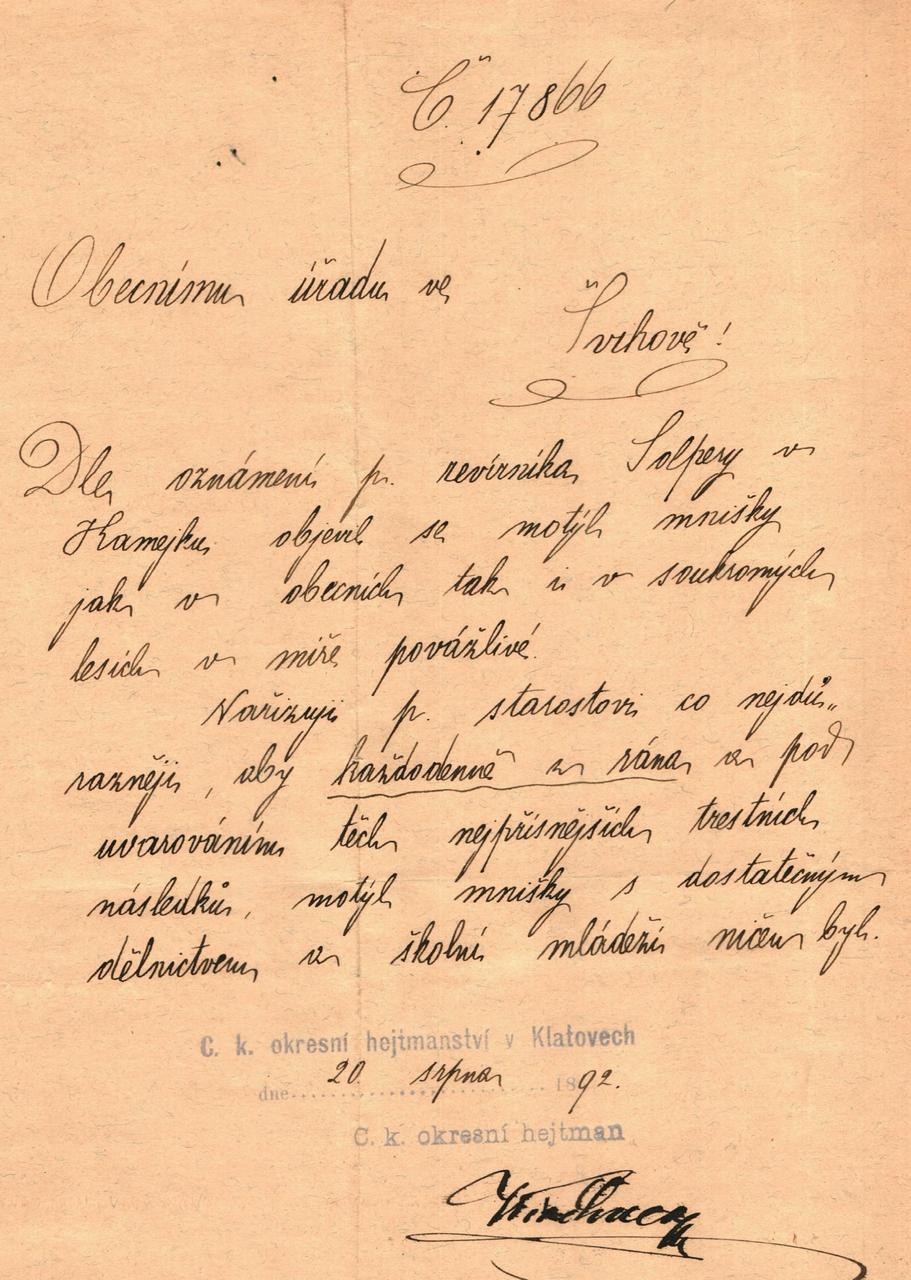 Č. 17866
Obecnímu úřadu ve
Švihově!
Dle oznámení p. revírníka Solpery v
Kamejku objevil se motýl mnišky
jak v obecních tak i v soukromých
lesích v míře povážlivé.
Nařizuji p. starostovi co nejdů„
razněji, aby každodenně z rána a pod
uvarováním těch nejpřísnějších trestních
následků, motýl mnišky s dostatečným
dělnictvem a školní mládeží ničen byl.
C. k. okresní hejtmanství v Klatovech
dne 20. srpna 1892.
C. k. okresní hejtman